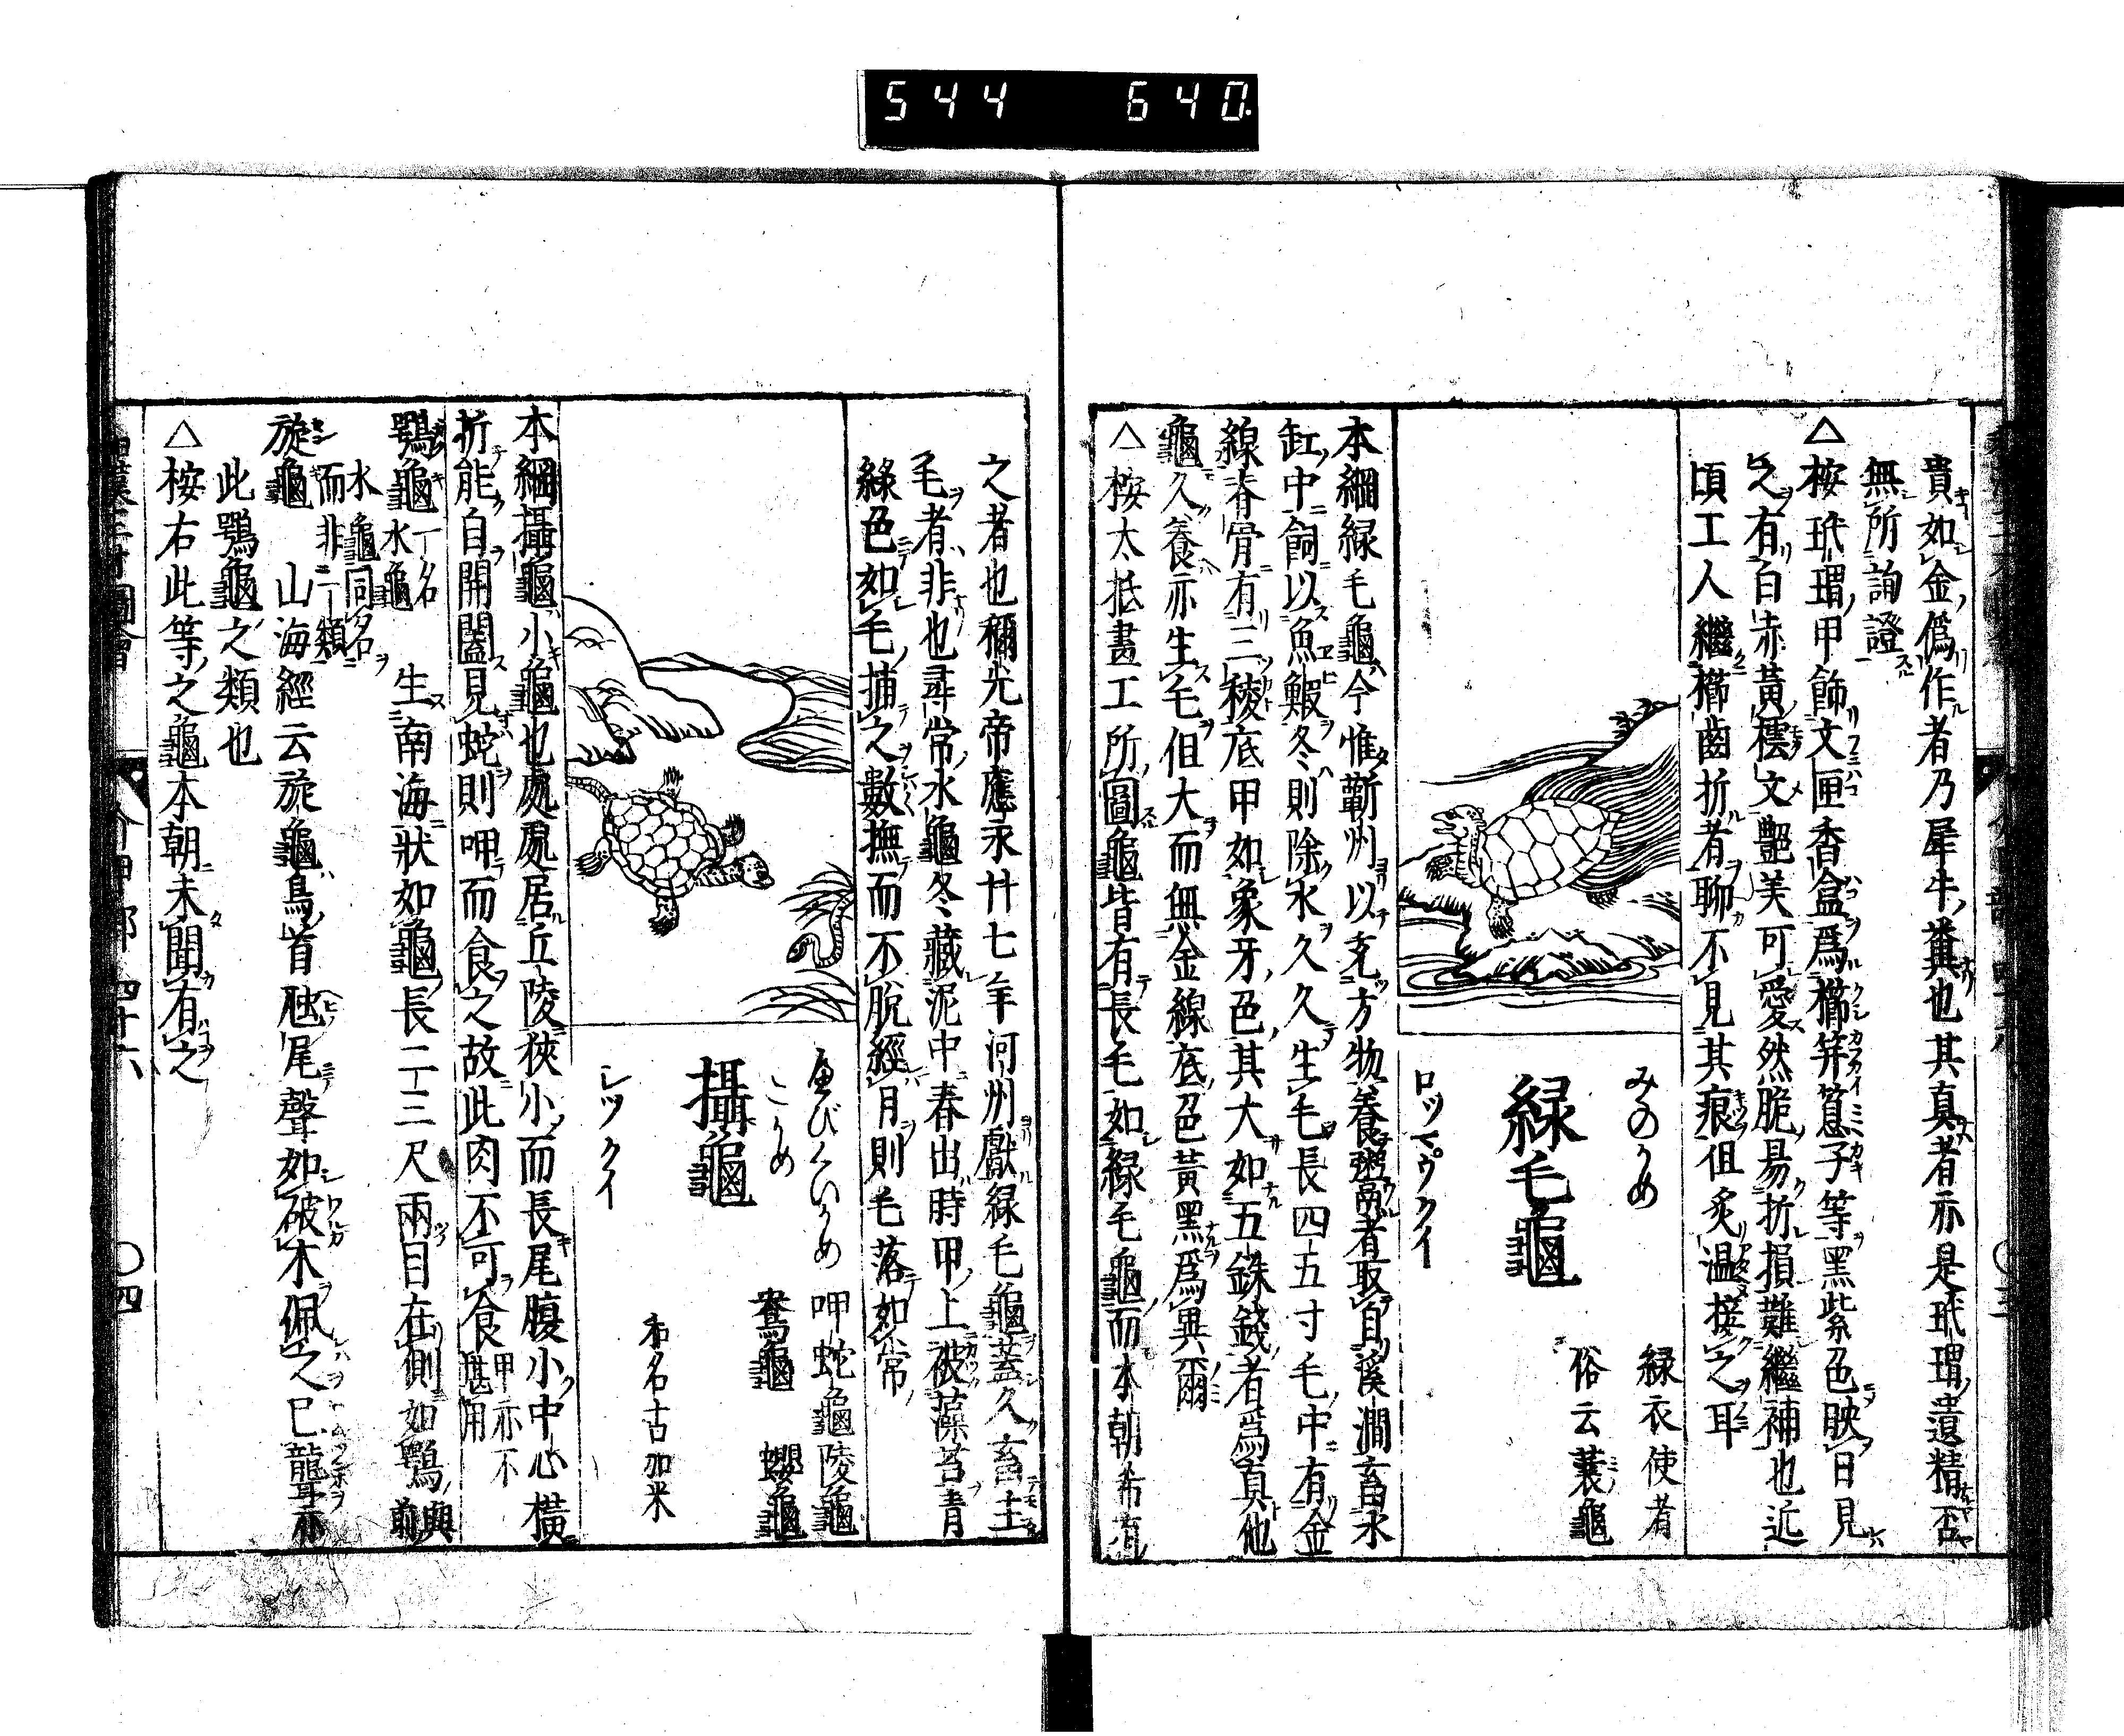 544 640
貴如金偽作者乃犀牛糞也其真者亦是玳瑁遺精否
無所詢證
△桉玳瑁甲飾文匣香盒爲櫛笄篦子等黑紫色映日見
之有白赤黃樰文艷美可愛然脆易折損難繼補也近
頃工人繼櫛齒折者聊不見其痕但炙温接之耳
みのかめ
緑衣使者
俗云蓑龜
緑毛龜
ロツマ゚ウクイ
本綱緑毛龜今惟蘄州以充方物養鬻者取自溪澗畜水
缸中飼以魚鰕冬則除水久久生毛長四五寸毛中有金
線脊骨有三稜底甲如象牙色其大如五銖錢者爲眞他
龜久養亦生毛但大而無金線底色黃黑爲異爾
△桉太抵畫工所圖龜皆有長毛如緑毛龜而本朝希有
之者也稱光帝應永廿七年河州獻緑毛龜蓋久畜土
毛者非也尋常水龜冬藏泥中春出時甲上被藻苔青
緑色如毛捕之數撫而不脫經月則毛落如常
へびくいかめ
こかめ
呷蛇龜 陵龜
鴦龜 蠳龜
攝龜
和名古加米
シツクイ
本綱攝龜小龜也處處居丘陵狹小而長尾腹小中心橫
折能自開闔見蛇則呷而食之故此肉不可食甲亦不
堪用
鶚龜一名
水龜
生南海狀如龜長二三尺兩目在側如鶚與前
水龜同名
而非一類
旋龜 山海經云旋龜鳥首虺尾聲如破木佩之已聾亦
此鶚龜之類也
△桉右此等之龜本朝未聞有之
四十六
〇四